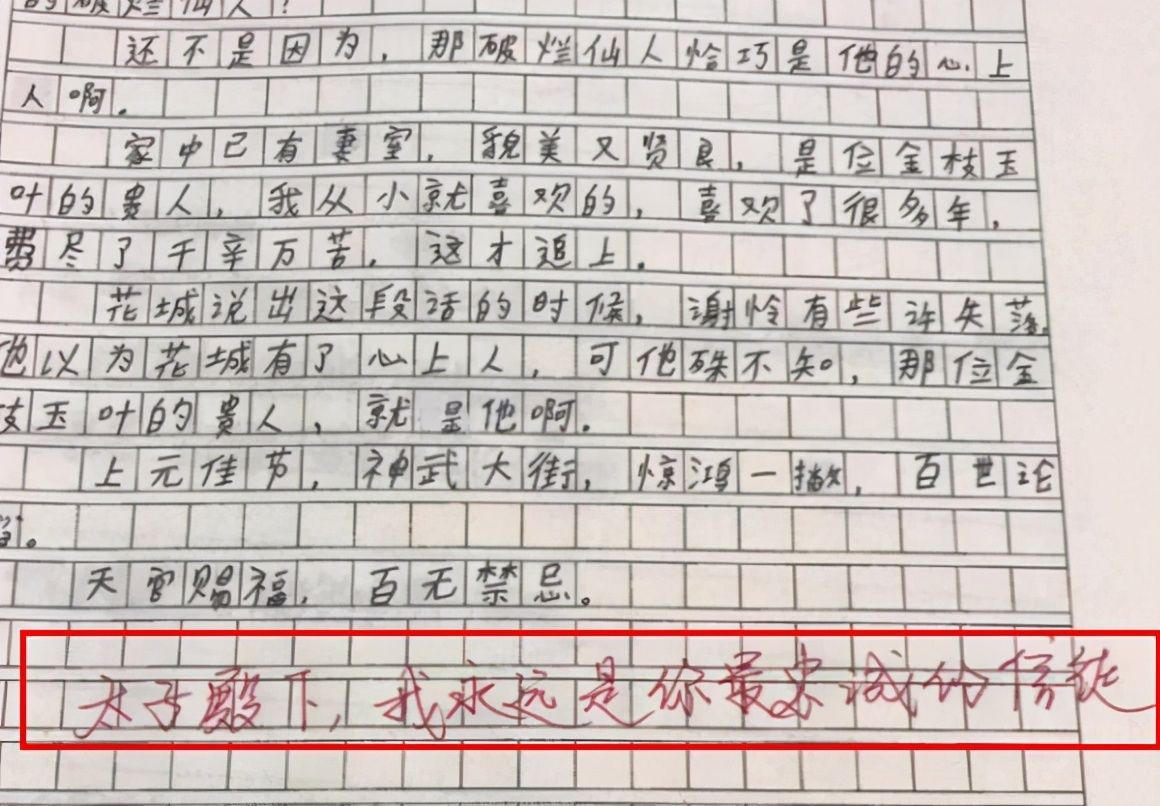 的破烂仙人?
还不是因为，那破烂仙人恰巧是他的心上
人啊。
家中已有妻室，貌美又贤良，是位金枝玉
叶的贵人，我从小就喜欢的，喜欢了很多年，
费尽了千辛万苦，这才追上。
花城说出这段话的时候，谢怜有些许失落，
他以为花城有了心上人，可他殊不知，那位金
枝玉叶的贵人，就是他啊。
上元佳节，神武大街，惊鸿一撇，百世沦
陷。
天官赐福，百无禁忌。
太子殿下，我永远是你最忠诚的信徒